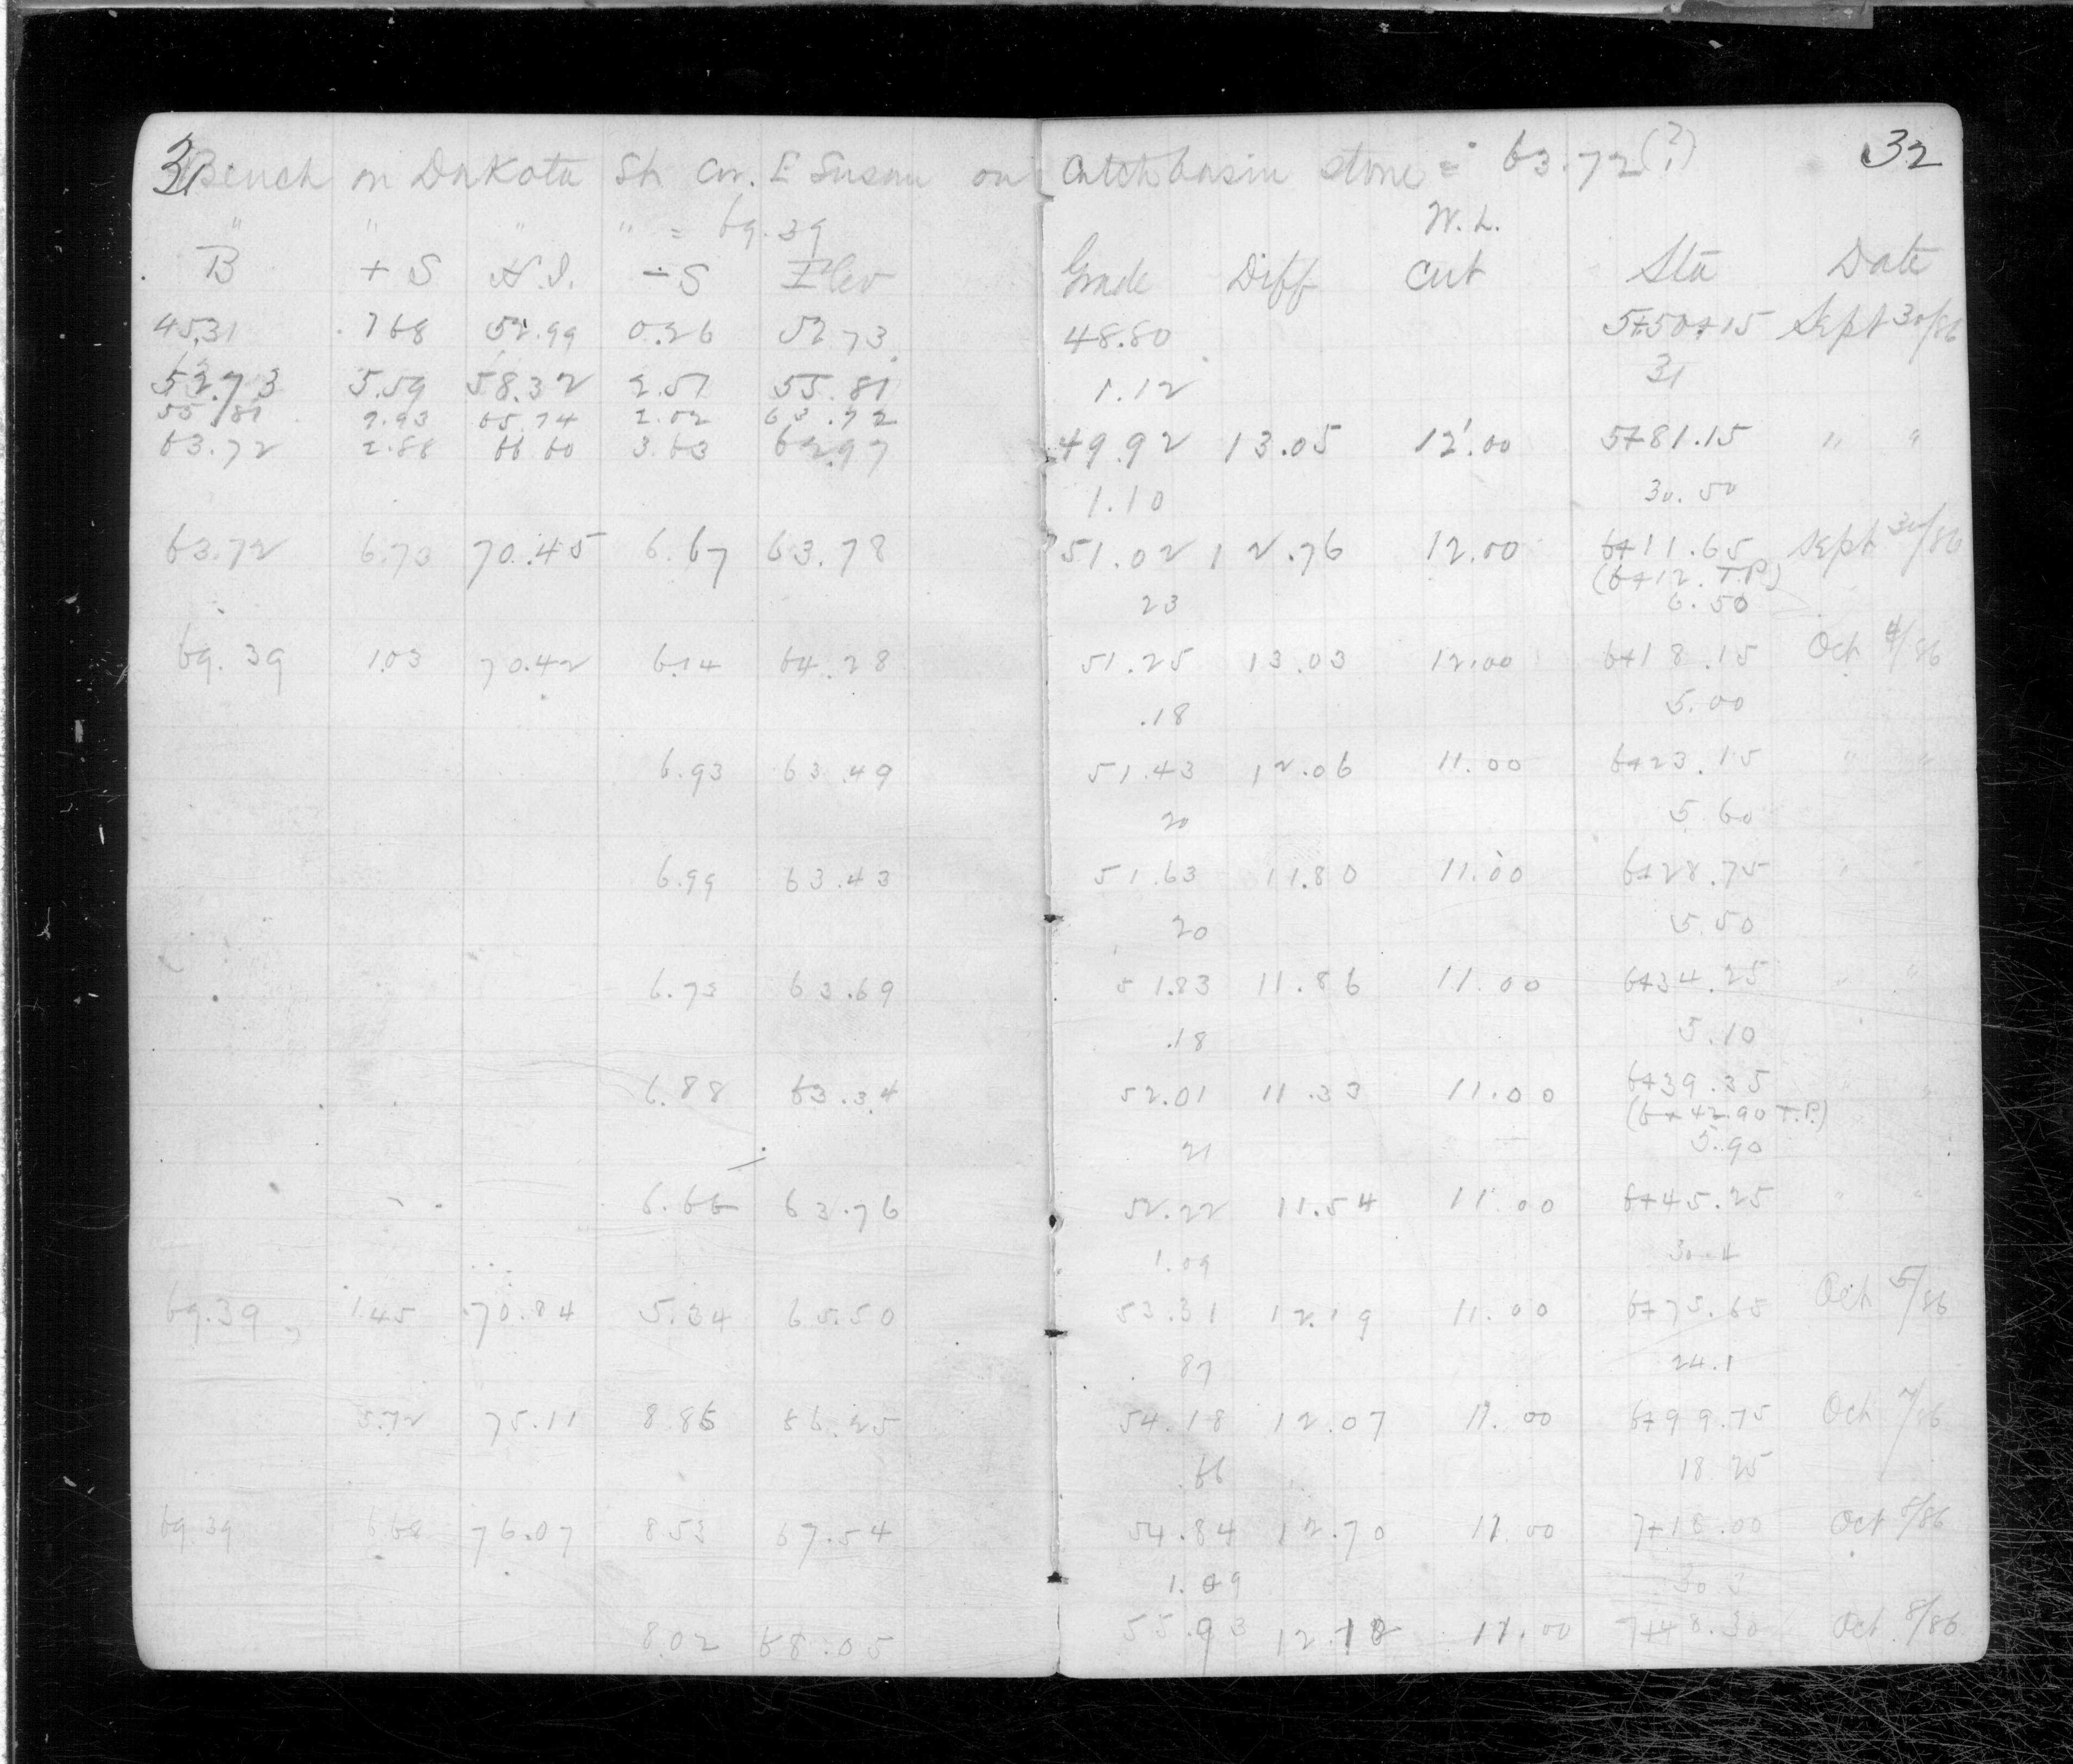 31 Bench on Dakota St. Cor. E Susan on Catch basin stone = 63.72(?) 32
" " " " = 69.39 W. L.
B + S H.I. - S Elev Grade Diff Cut Sta Date
45.31 7.68 52.99 0.26 52.73 48.80 5+50+15 Sept 30/86
52.73 5.59 58.32 2.51 55.81 1.12 31
55.81 9.93 65.74 2.02 63.72
63.72 2.88 66.60 3.63 62.97 49.92 13.05 12'.00 5+81.15 " "
1.10 30.50
63.72 6.73 70.45 6.67 63.78 51.02 12.76 12.00 6+11.65 Sept 30/86
(6+12. T.P.)
23 6.50
69.39 1.03 70.42 6.14 64.28 51.25 13.03 12.00 6+18.15 Oct 4/86
.18 5.00
6.93 63.49 51.43 12.06 11.00 6+23.15 " "
20 5.60
6.99 63.43 51.63 11.80 11.00 6+28.75 " "
20 5.50
6.73 63.69 51.83 11.86 11.00 6+34.25 " "
.18 5.10
6.88 63.34 52.01 11.33 11.00 6+39.35 " "
(6+42.90 T.P.)
21 5.90
6.66 63.76 52.22 11.54 11.00 6+45.25 " "
1.09 30.4
69.39 1.45 70.84 5.34 65.50 53.31 12.19 11.00 6+75.65 Oct 5/86
87 24.1
5.72 75.11 8.86 66.25 54.18 12.07 11.00 6+99.75 Oct 7/86
.66 18.25
69.39 6.68 76.07 8.53 67.54 54.84 12.70 11.00 7+18.00 Oct 8/86
1.09 30.3
8.02 68.05 55.93 12.12 11.00 7+48.30 Oct 8/86